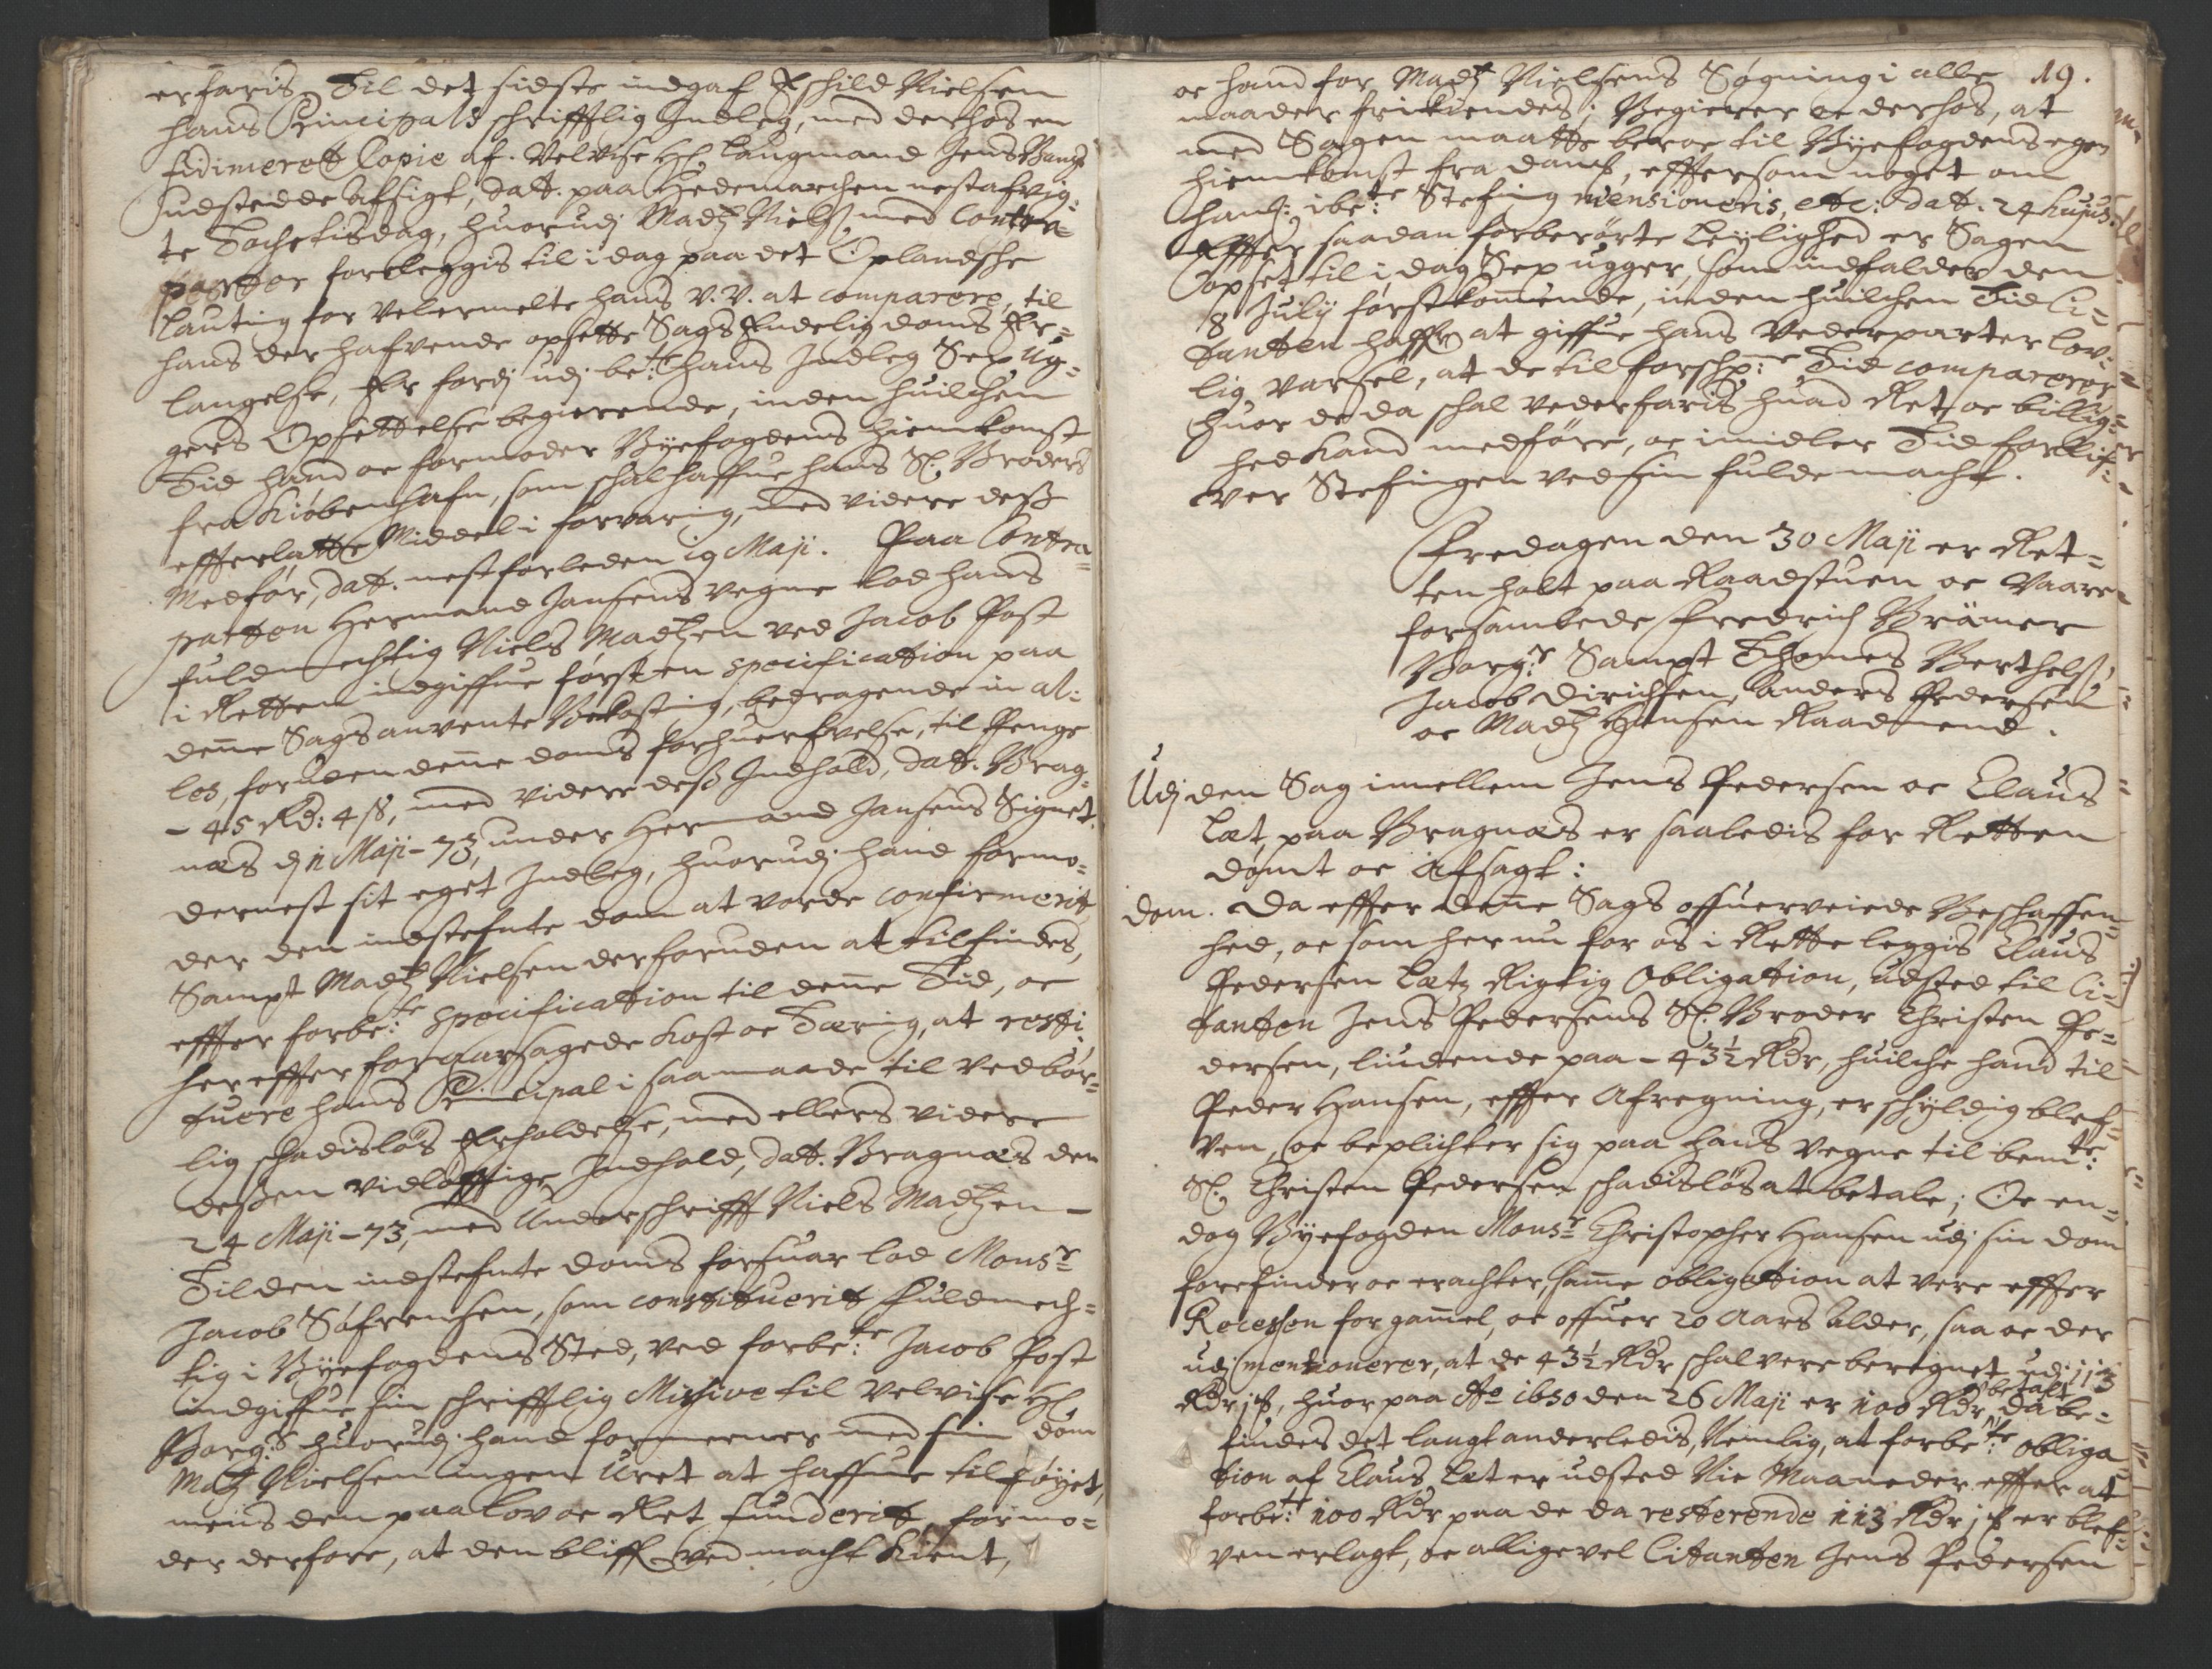 erfaris. Til det sidste indgaf Eschild Nielsen
hans Principals schrifftlig Indleg, med derhos en
fidimerett Copie af Velvise Hr. Laugmand Jens Bangs
udstedde afsigt, datt. paa Hedemarchen nestafvig-
te Tochetisdag, huorudj Madtz Nielss. med Contra-
parter foreleggis til i dag paa det Oplandsche
Lauting for Velermelte hans V. V. at comparere, til
hans der hafvende opsette Sags Endelig doms Er-
langelse, Er fordj udj be:te hans Indleg Sex ug-
gers Opsettelse begierende, inden huilchen
Tid hand oc formoder Byefogdens hiemkomst
fra Kiøbenhafn, som schal haffue hans Sl. Broders
efterlatte Middel i forvaring, med videre dess
Medfør, datt. nestforleden 19 Maji. Paa Contra-
parten Hermand Jansens vegne lod hans
fuldmechtig Niels Madtzen ved Jacob Post
i Retten indgiffue først en specification paa
denne Sags anvente Bekostning, bedragende in al-
les, foruden denne doms forhuerfvelse, til Penge
- 45 Rd: 4 ß, med videre dess Indhold, datt. Brag-
næs dj 11 Maji - 73, under Hermand Jansens Signet.
dernest sit eget Indleg, huorudj hand formo-
der den indstefnte dom at vorde confirmerit
Sampt Madtz Nielsen derforuden at tilfindes,
effter forbe:te specification til denne Tid, oc
hereffter foraarsagede Kost oc Tæring, at resti-
tuere hans Principal i saa maade til Vedbør-
lig schadisløs Erholdelse, med ellers videre
dessen vidløfftige Indhold, datt. Bragnæs den
24 Maji - 73, med Underschrifft Niels Madtzen -
Til den indstefnte doms forsuar lod Monsr
Jacob Søfrensen, som constituerit fuldmech-
tig i Byefogdens Sted, ved forbe:te Jacob Post
indgiffue sin schrifftlig Missive til Velvise Hr.
Borg:s huorudj hand formeener med sin dom
Matz Nielsen ingen Uret at haffue tilføyet,
mens den paa Lov oc Ret funderit, formo-
der derfore, at den bliffr ved macht Kient,
19.
oc hand for Madtz Nielsens Søgning i alle
maader frikiendes; Begierer oc derhos, at
med Sagen maatte beroe til Byefogdens egen
hiemkomst fra danch, effter som noget om
hans: ibe:te Stefning mensioneris, etc: datt. 24 hujus.
Effter saadan forberørte Leylighed er Sagen
opset til i dag Sex ugger, som indfalder den
8 July førstkommende, inden huilchen Tid Ci-
tanten haffr at giffue hans Vederparter lov-
lig Varsel, at de til forschr:ne Tid comparerer
huor de da schal vederfaris huad Ret oc billig-
hed kand medføre, oc imidler Tid forblif-
ver Stefningen ved sin fulde macht.
Fredagen den 30 Maji er Ret-
ten holt paa Raadstuen oc Vaare
forsamblede Fredrich Brämer
Borg:r Sampt Thomes Berthelss.
Jacob Dirichsen, Anders Pedersen
oc Madtz Hansen Raadmend.
Udj den Sag imellem Jens Pedersen oc Claus
Læt, paa Bragnæs er saaledis for Retten
dømt oc Afsagt:
dom. Da effter denne Sags offuerveiede Beschaffen-
hed, oc som her nu for os i Rette leggis Claus
Pedersen Lætz Rigtig Obligation, udsted til Ci-
tanten Jens Pedersens Sl. Broder Christen Pe-
dersen, liudende paa - 43½ Rdr, huilche hand til
Peder Hansen, effter Afregning, er schyldig blef-
ven, oc beplichter sig paa hans vegne til bem:te
Sl. Christen Pedersen schadisløs at betale; Oc en-
dog Byefogden Monsr Christopher Hansen udj sin dom
forefinder oc erachter, samme obligation at vere effter
Recessen for gammel, oc offuer 20 Aars Alder, saa oc der
udj mentionerer, at de 43½ Rdr schal vere beregnet udj 113
Rdr 1 ß, huor paa Ao 1650 den 26 Maji er 100 Rdr betalt, da be-
findes det langt anderledis, Nemlig, at forbe:te obliga-
tion af Claus Læt er udsted Nie Maaneder effter at
forbe:te 100 Rdr paa de da resterende 113 Rdr 1 ß er blef-
ven erlagt, oc alligevel Citanten Jens Pedersen